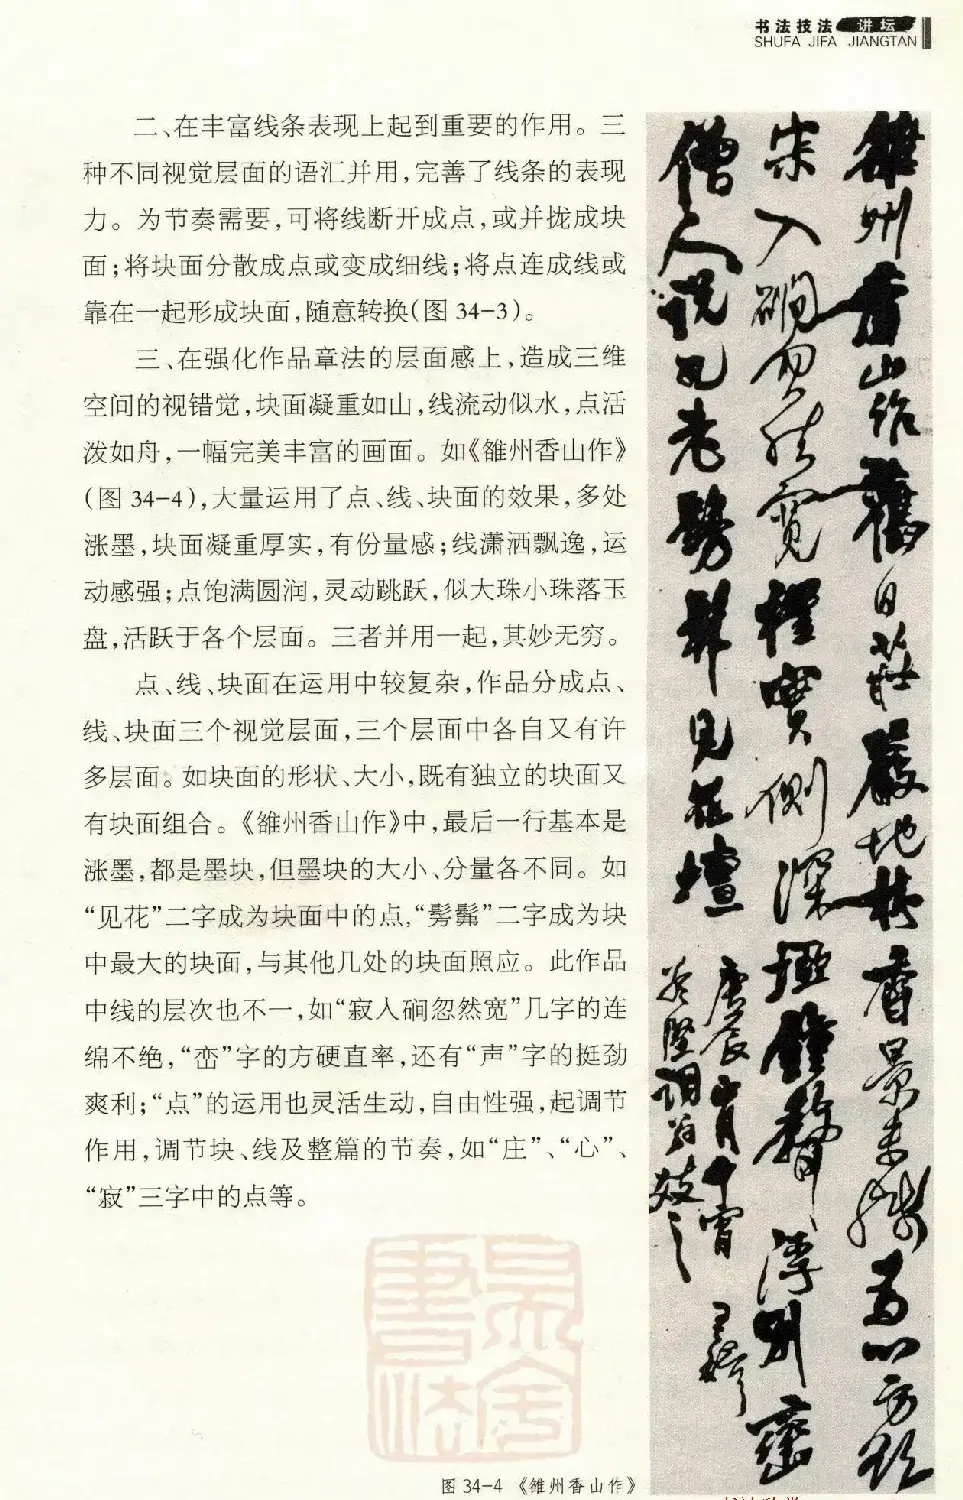 书法技法 讲坛
SHUFA JIFA JIANGTAN
二、在丰富线条表现上起到重要的作用。三
种不同视觉层面的语汇并用，完善了线条的表现
力。为节奏需要，可将线断开成点，或并拢成块
面；将块面分散成点或变成细线；将点连成线或
靠在一起形成块面，随意转换（图 34-3）。
三、在强化作品章法的层面感上，造成三维
空间的视错觉，块面凝重如山，线流动似水，点活
泼如舟，一幅完美丰富的画面。如《雒州香山作》
（图 34-4），大量运用了点、线、块面的效果，多处
涨墨，块面凝重厚实，有份量感；线潇洒飘逸，运
动感强；点饱满圆润，灵动跳跃，似大珠小珠落玉
盘，活跃于各个层面。三者并用一起，其妙无穷。
点、线、块面在运用中较复杂，作品分成点、
线、块面三个视觉层面，三个层面中各自又有许
多层面。如块面的形状、大小，既有独立的块面又
有块面组合。《雒州香山作》中，最后一行基本是
涨墨，都是墨块，但墨块的大小、分量各不同。如
“见花”二字成为块面中的点，“髣髴”二字成为块
中最大的块面，与其他几处的块面照应。此作品
中线的层次也不一，如“寂人硐忽然宽”几字的连
绵不绝，“峦”字的方硬直率，还有“声”字的挺劲
爽利；“点”的运用也灵活生动，自由性强，起调节
作用，调节块、线及整篇的节奏，如“庄”、“心”、
“寂”三字中的点等。
雒州香山作舊日莊嚴地
香景未
心方
入硐忽然寬
實側深
鐘聲
別巒
僧人說
老髣髴見花壇
庚辰
王鐸
图 34-4 《雒州香山作》